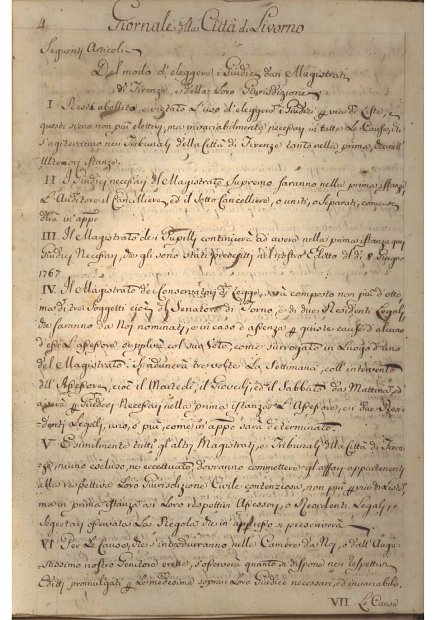 4 Giornale della Città di Livorno
Seguenti Articoli
Del modo d'eleggere i Giudici dai Magistrati
di Firenze, e della Loro Giurisdizione
I Resti abolito, e vietato L'uso d'eleggere i Giudici per via di Liste, e
questi sieno non più elettivi, ma invariabilmente necessarj in tutte Le Cause, che
s'agiteranno nei Tribunali della Città di Firenze tanto nella prima, che nell'
Ulteriori istanze.
II I Giudici necessarj del Magistrato Supremo saranno nella prima istanza
L'Auditore il Cancelliere, ed il Sotto Cancelliere, o uniti, o separati, come
dirà in appo
III. Il Magistrato dei Pupilli continuerà ad avere nella prima istanza quei
Giudici Necessarj, che gli sono stati prescritti nel nostro Editto del dì 8 Giugno
1767
IV. Il Magistrato dei Conservatori di Legge, sarà composto non più d'otto
ma di tre Soggetti cioè del Senatore di Torno, e di due Residenti Legali,
che saranno da Noi nominati, e in caso d'assenza per giuste cause d'alcuno
d'essi L'Assessore supplirà col suo Voto, come surrogato in Luogo d'uno
del Magistrato. Si adunerà tre volte La Settimana, coll'intervento
dell'Assessore, cioè il Martedì, il Giovedì, ed il Sabbato da Mattina, ed
averà per Giudici Necessarj nella prima istanza L'Assessore, e i due Resi-
denti Legali, uno, o più, come in appo sarà determinato.
V E similmente tutti gl'altri Magistrati, e Tribunali della Città di Firen-
ze, niuno escluso, ne eccettuato, dovranno commettere gl'affari appartenenti
alla respettiva Loro Giurisdizione Civile contenziosa, non più per via di Liste,
ma in prima istanza ai Loro respettivi Assessori, o Residenti Legali, e
Segretari osservate Le Regole che in appresso si prescriverà
VI Per Le Cause, che s'introdurranno nelle Camere da Noi, o dall'Augu-
stissimo nostro Genitore erette, s'osserverà quanto si dispone nei respettivi
Editti promulgati per Le medesime sopra i Loro Giudici necessarj, ed invariabili.
VII. Le Cause